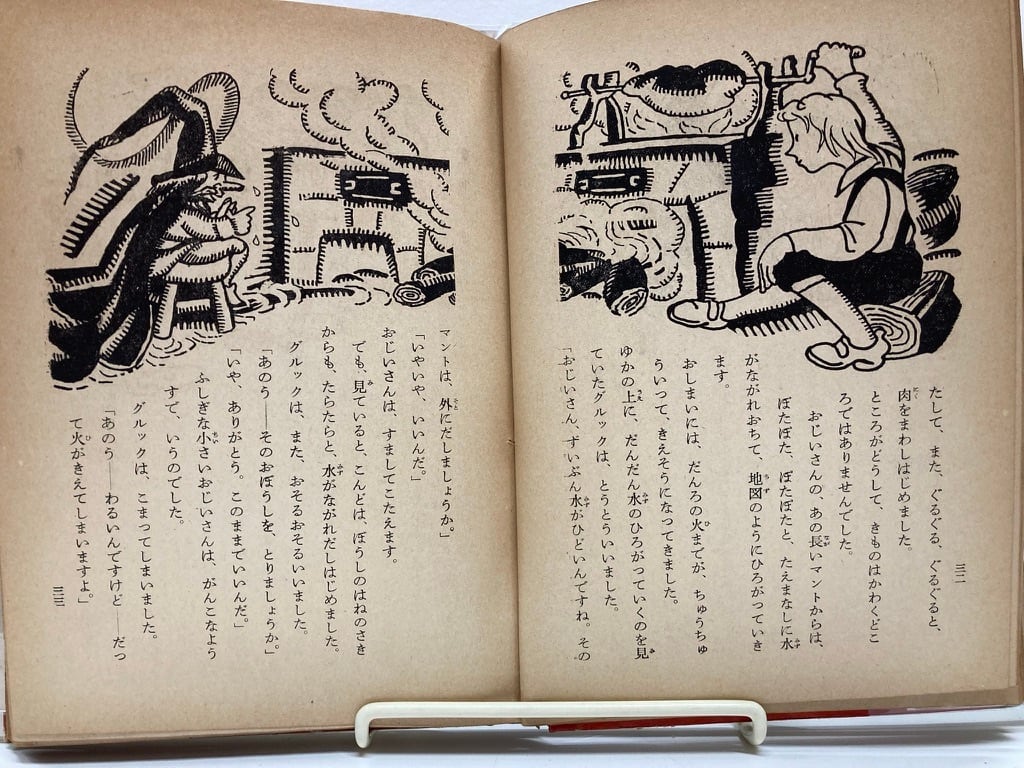 たして、また、ぐるぐる、ぐるぐると、
肉をまわしはじめました。
ところがどうして、きものはかわくどこ
ろではありませんでした。
おじいさんの、あの長いマントからは、
ぽたぽた、ぽたぽたと、たえまなしに水
がながれおちて、地図のようにひろがっていき
ます。
おしまいには、だんろの火までが、ちゅうちゅ
ういって、きえそうになってきました。
ゆかの上に、だんだん水のひろがっていくのを見
ていたグルックは、とうとういいました。
「おじいさん、ずいぶん水がひどいんですね。その
三二
マントは、外にだしましょうか。」
「いやいや、いいんだ。」
おじいさんは、すましてこたえます。
でも、見ていると、こんどは、ぼうしのはねのさき
からも、たらたらと、水がながれだしはじめました。
グルックは、また、おそるおそるいいました。
「あのう――そのおぼうしを、とりましょうか。」
「いや、ありがとう。このままでいいんだ。」
ふしぎな小さいおじいさんは、がんこなよう
すで、いうのでした。
グルックは、こまってしまいました。
「あのう――わるいんですけど――だっ
て火がきえてしまいますよ。」
三三